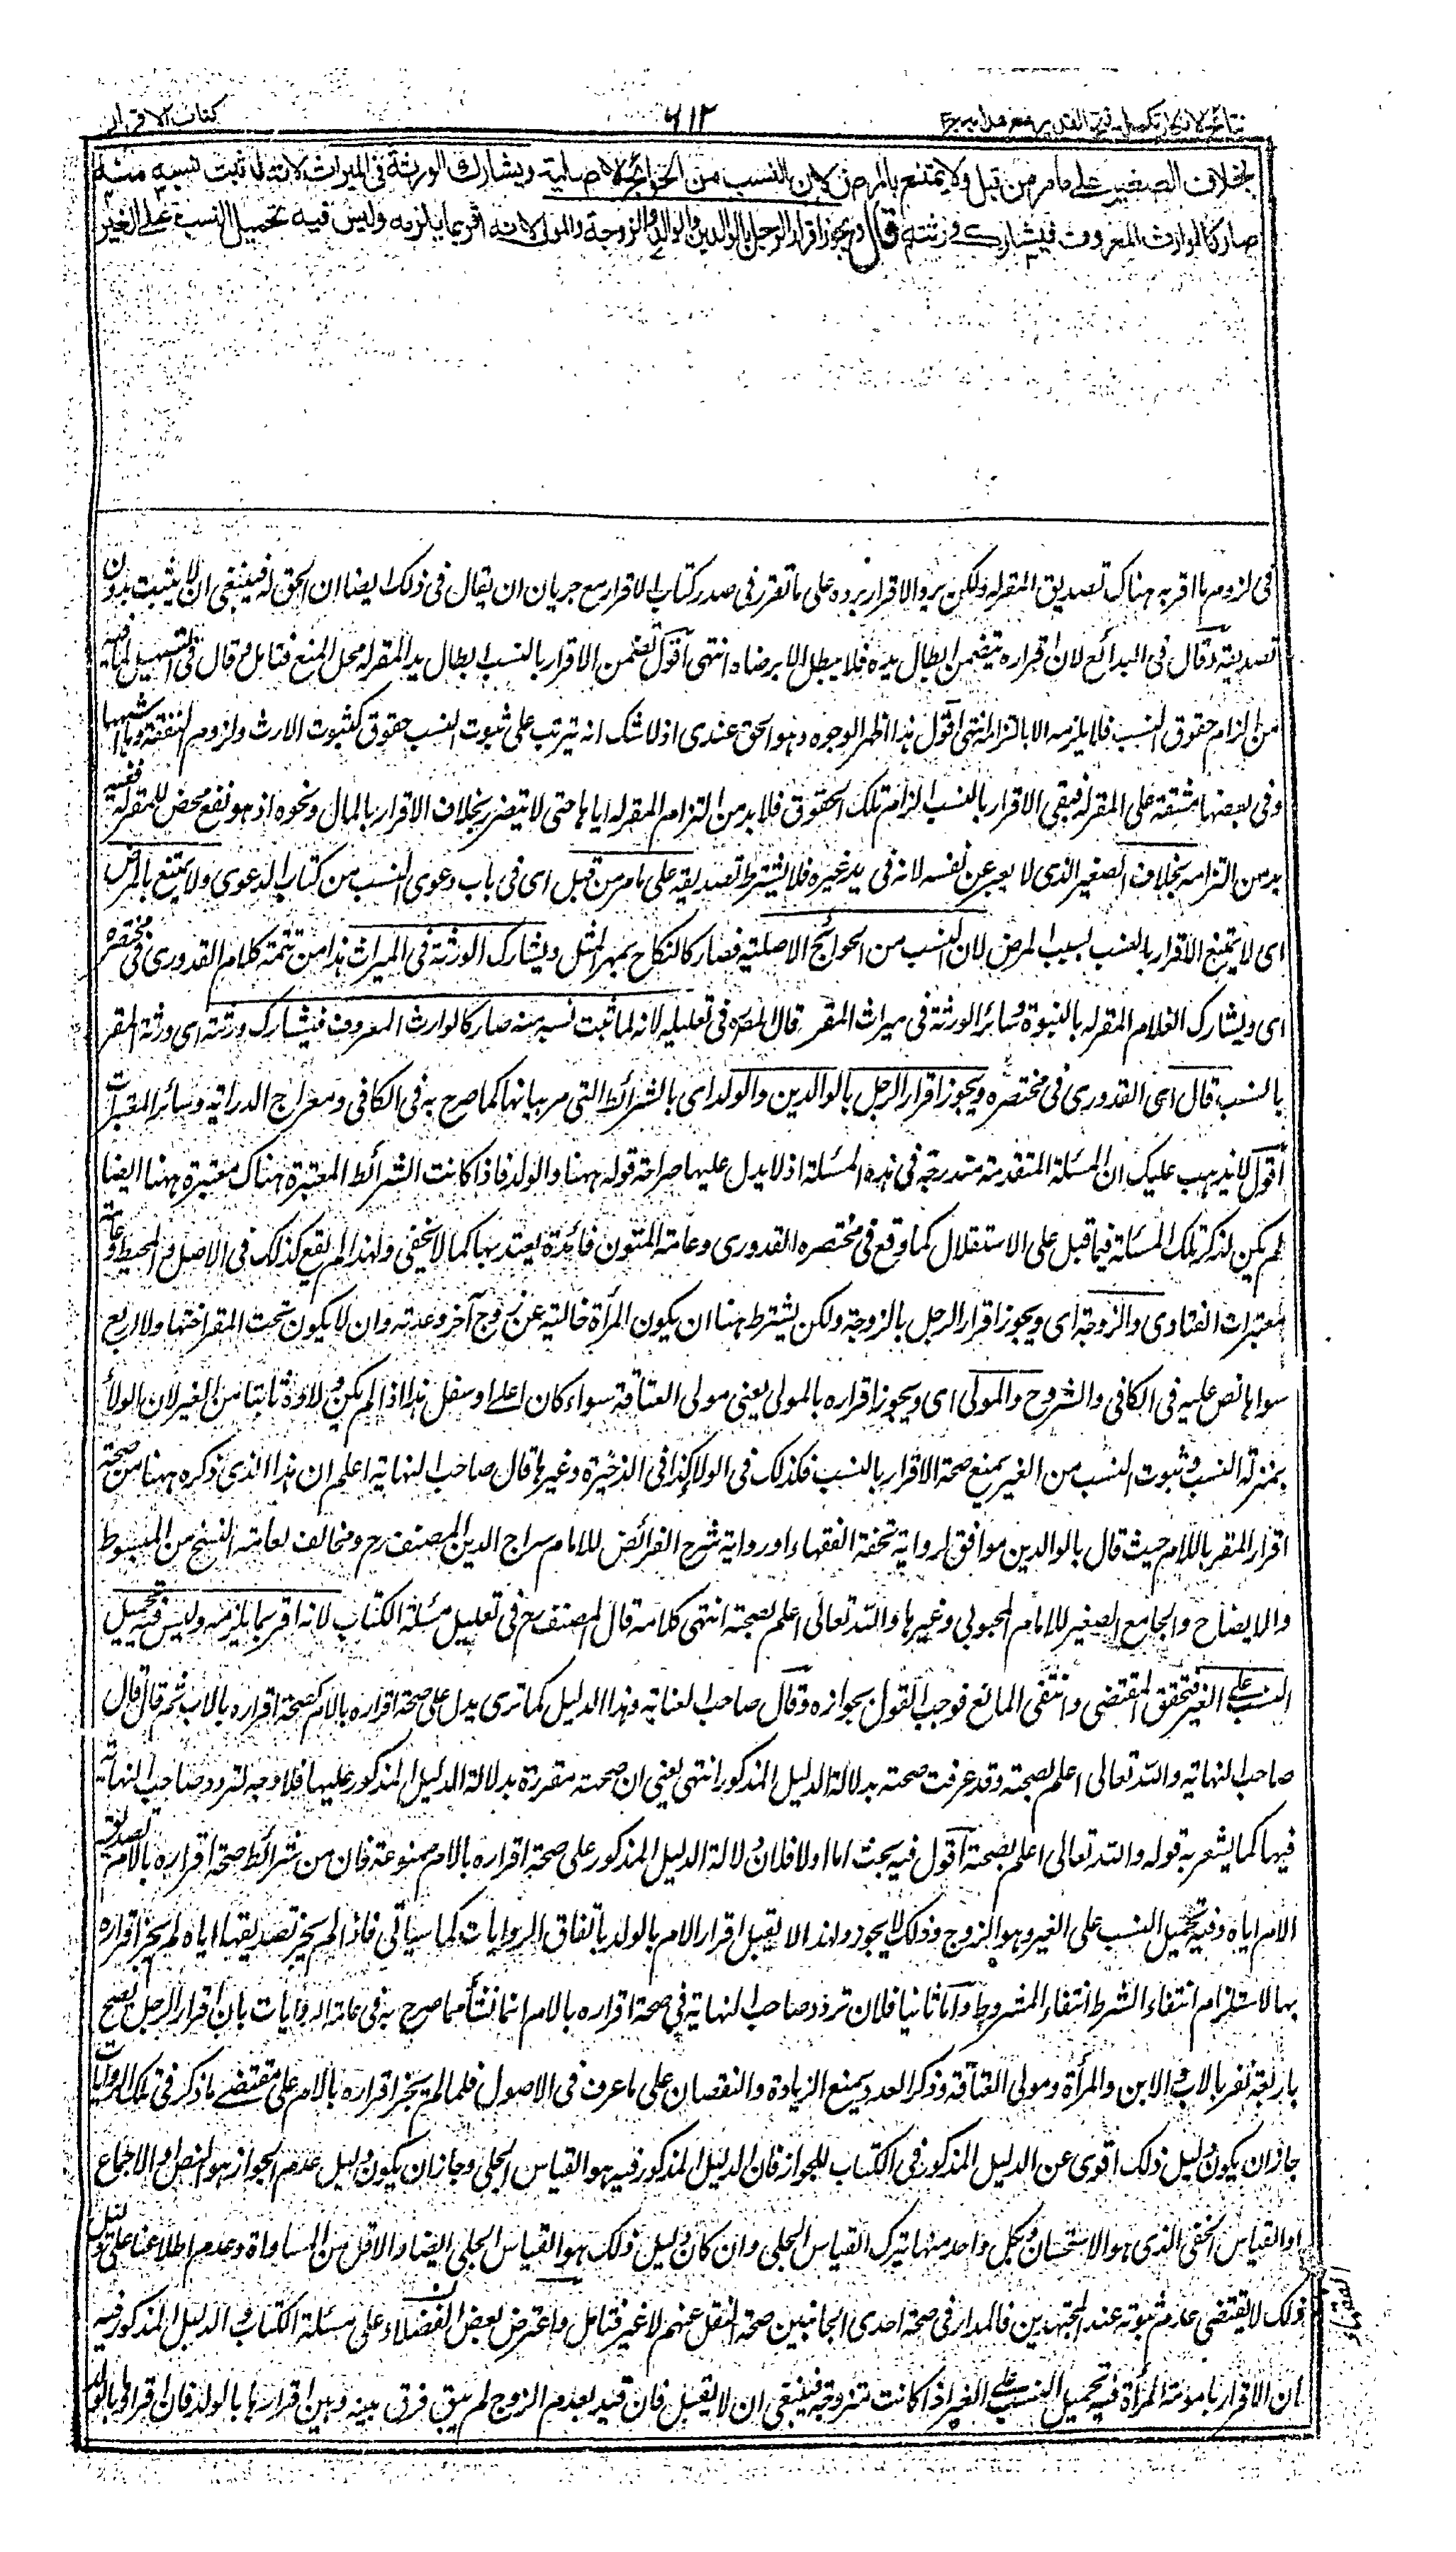 نتائج الافكار تكملة فتح القدير مع هداية ج ٣
٦١٢
كتاب الاقرار
بخلاف الصغير على ما مر من قبل ولا يمتنع بالمرض لان النسب من الحوائج الاصلية ويشارك الورثة فى الميراث لانه لما ثبت نسبه منه
صار كالوارث المعروف فيشارك ورثته قال ويجوز اقرار الرجل بالوالدين والولد والزوجة والمولى لانه اقر بما يلزمه وليس فيه تحميل النسب على الغير
فى لزوم ما اقر به هناك تصديق المقر له ولكن يرد الاقرار برده على ما تقرر فى صدر كتاب الاقرار مع جريان ان يقال فى ذلك ايضا ان الحق له فينبغى ان لا يثبت بدون
تصديقه وقال فى البدائع لان اقراره يتضمن ابطال يده فلا يبطل الا برضاه انتهى اقول تضمن الاقرار بالنسب ابطال يد المقر له محل المنع فتامل وقال فى التسهيل لما فيه
من الزام حقوق النسب فلا يلزمه الا بالتزامه انتهى اقول هذا اظهر الوجوه وهو الحق عندى اذ لا شك انه يترتب على ثبوت النسب حقوق كثبوت الارث ولزوم النفقة وما اشبهها
وفى بعضها مشقة على المقر له فبقى الاقرار بالنسب الزام تلك الحقوق فلا بد من التزام المقر له اياها حتى لا يتضرر بخلاف الاقرار بالمال ونحوه اذ هو نفع محض للمقر له ففيه
بد من التزامه بخلاف الصغير الذى لا يعبر عن نفسه لانه فى يد غيره فلا يشترط تصديقه على ما مر من قبل اى فى باب دعوى النسب من كتاب الدعوى ولا يمتنع بالمرض
اى لا يمتنع الاقرار بالنسب بسبب المرض لان النسب من الحوائج الاصلية فصار كالنكاح بمهر المثل ويشارك الورثة فى الميراث هذا من تتمة كلام القدورى فى مختصره
اى ويشارك الغلام المقر له بالنبوة سائر الورثة فى ميراث المقر قال المصره فى تعليله لانه لما ثبت نسبه منه صار كالوارث المعروف فيشارك ورثته اى ورثة المقر
بالنسب قال اى القدورى فى مختصره ويجوز اقرار الرجل بالوالدين والولد اى بالشرائط التى مر بيانها كما صرح به فى الكافى ومعراج الدراية وسائر المعتبرات
اقول لا يذهب عليك ان المسئلة المتقدمة مندرجة فى هذه المسئلة اذ لا يدل عليها صراحة قوله ههنا والولد فاذا كانت الشرائط المعتبرة هناك معتبرة ههنا ايضا
لم يكن لذكر تلك المسئلة فيما قبل على الاستقلال كما وقع فى مختصره القدورى وعامة المتون فائدة يعتد بها كما لا يخفى ولهذا لم يقع كذلك فى الاصل والمحيط وعامة
معتبرات الفتاوى والزوجة اى ويجوز اقرار الرجل بالزوجة ولكن يشترط هنا ان يكون المرأة خالية عن زوج آخر وعدته وان لا يكون تحت المقر اختها ولا اربع
سواها نص عليه فى الكافى والشروح والمولى اى ويجوز اقراره بالمولى يعنى مولى العتاقة سواء كان اعلى او سفل هذا اذا لم يكن ولاؤه ثابتا من الغير لان الولاء
بمنزلة النسب وثبوت النسب من الغير يمنع صحة الاقرار بالنسب فكذلك فى الولاء كذا فى الذخيرة وغيرها قال صاحب النهاية اعلم ان هذا الذى ذكره ههنا من صحة
اقرار المقر باللام حيث قال بالوالدين موافق لرواية تحفة الفقهاء او رواية شرح الفرائض للامام سراج الدين المصنف رح ومخالف لعامة النسخ من المبسوط
والايضاح والجامع الصغير للامام المحبوبى وغيرها والله تعالى اعلم بصحته انتهى كلامه قال المصنف رح فى تعليل مسئلة الكتاب لانه اقر بما يلزمه وليس فيه تحميل
النسب على الغير فتحقق المقتضى وانتفى المانع فوجب القول بجوازه وقال صاحب العناية وهذا الدليل كما ترى يدل على صحة اقراره بالام كصحة اقراره بالاب ثم قال قال
صاحب النهاية والله تعالى اعلم بصحته وقد عرفت صحته بدلالة الدليل المذكور انتهى يعنى ان صحته مقررة بدلالة الدليل المذكور عليها فلا وجه لتردد صاحب النهاية
فيها كما يشعر به قوله والله تعالى اعلم بصحته اقول فيه بحث اما اولا فلان دلالة الدليل المذكور على صحة اقراره بالام ممنوعة فان من شرائط صحة اقراره بالام تصديق
الام اياه وفيه تحميل النسب على الغير وهو الزوج وذلك لا يجوز ولهذا لا يقبل اقرار الام بالولد باتفاق الروايات كما سياتى فاذا لم يجز تصديقها اياه لم يجز اقراره
بها لاستلزام انتفاء الشرط انتفاء المشروط واما ثانيا فلان تردد صاحب النهاية فى صحة اقراره بالام انما نشأ مما صرح به فى عامة الروايات بان اقرار الرجل يصح
باربعة نفر بالاب والابن والمرأة ومولى العتاقة وذكر العدد يمنع الزيادة والنقصان على ما عرف فى الاصول فلما لم يجز اقراره بالام على مقتضى ما ذكر فى تلك الروايات
جاز ان يكون دليل ذلك اقوى عن الدليل المذكور فى الكتاب للجواز فان الدليل المذكور فيه هو القياس الجلى وجاز ان يكون دليل عدم الجواز هو النص او الاجماع
او القياس الخفى الذى هو الاستحسان وبكل واحد منها يترك القياس الجلى وان كان دليل ذلك هو القياس الجلى ايضا فلا اقل من المساواة وعدم اطلاعنا على دليل
ذلك لا يقتضى عدم ثبوته عند المجتهدين فالمدار فى صحة احدى الجانبين صحة النقل عنهم لا غير فتامل واعترض بعض الفضلاء على مسئلة الكتاب والدليل المذكور فيه
ان الاقرار بامومة المرأة فيه تحميل النسب على الغير اذا كانت متزوجة فينبغى ان لا يقبل فان قيد بعدم الزوج لم يبق فرق بينه وبين اقرارها بالولد فان اقرارها بالولد